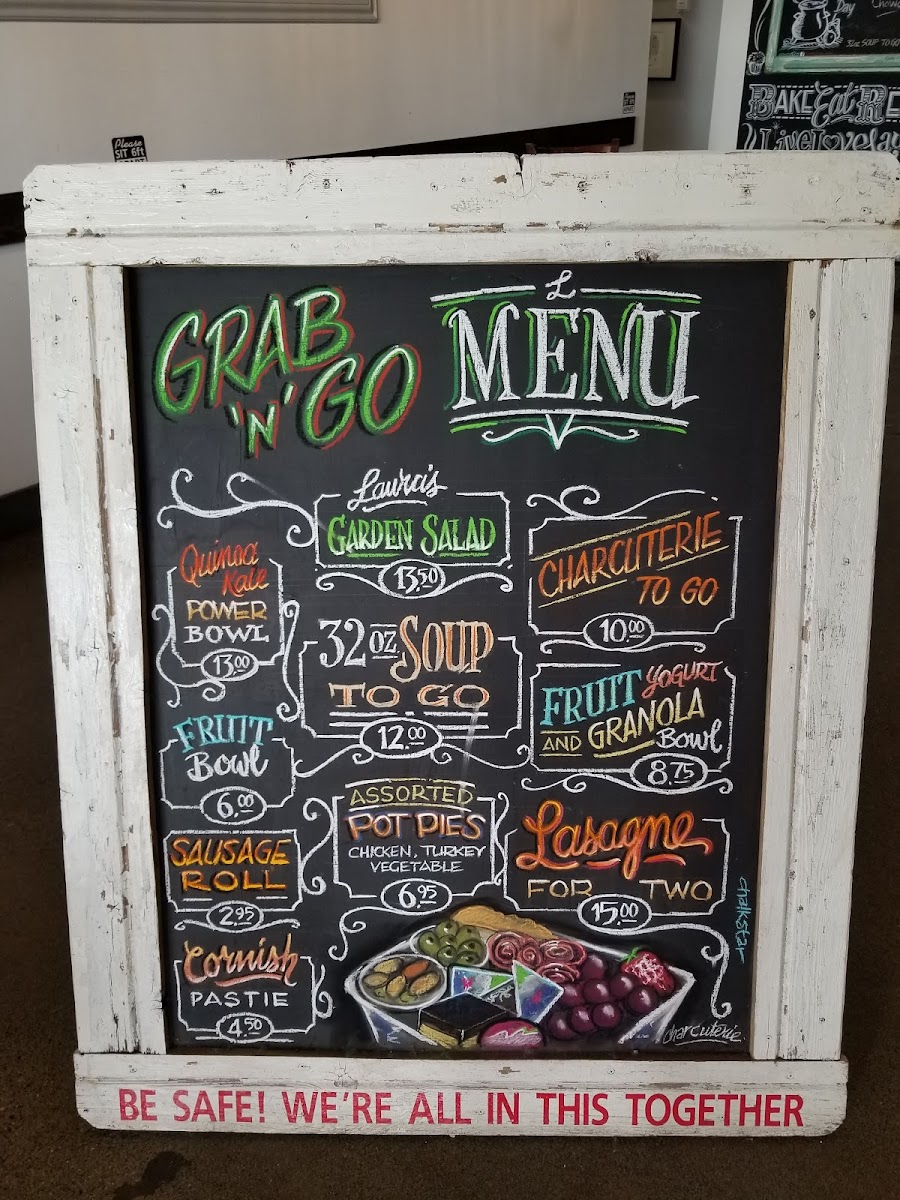 Day
Chow
32oz SOUP TO GO
BAKE Eat R
Live Love
Please
SIT 6ft
GRAB
'N' GO
MENU
Quinoa
Kale
POWER
BOWL
13.00
FRUIT
Bowl
6.00
SAUSAGE
ROLL
2.95
Cornish
PASTIE
4.50
Laura's
GARDEN SALAD
13.50
32oz SOUP
TO GO
12.00
ASSORTED
POT PIES
CHICKEN, TURKEY
VEGETABLE
6.95
CHARCUTERIE
TO GO
10.00
FRUIT YOGURT
AND GRANOLA
Bowl
8.75
Lasagne
FOR TWO
15.00
chalkstar
charcuterie
BE SAFE! WE'RE ALL IN THIS TOGETHER